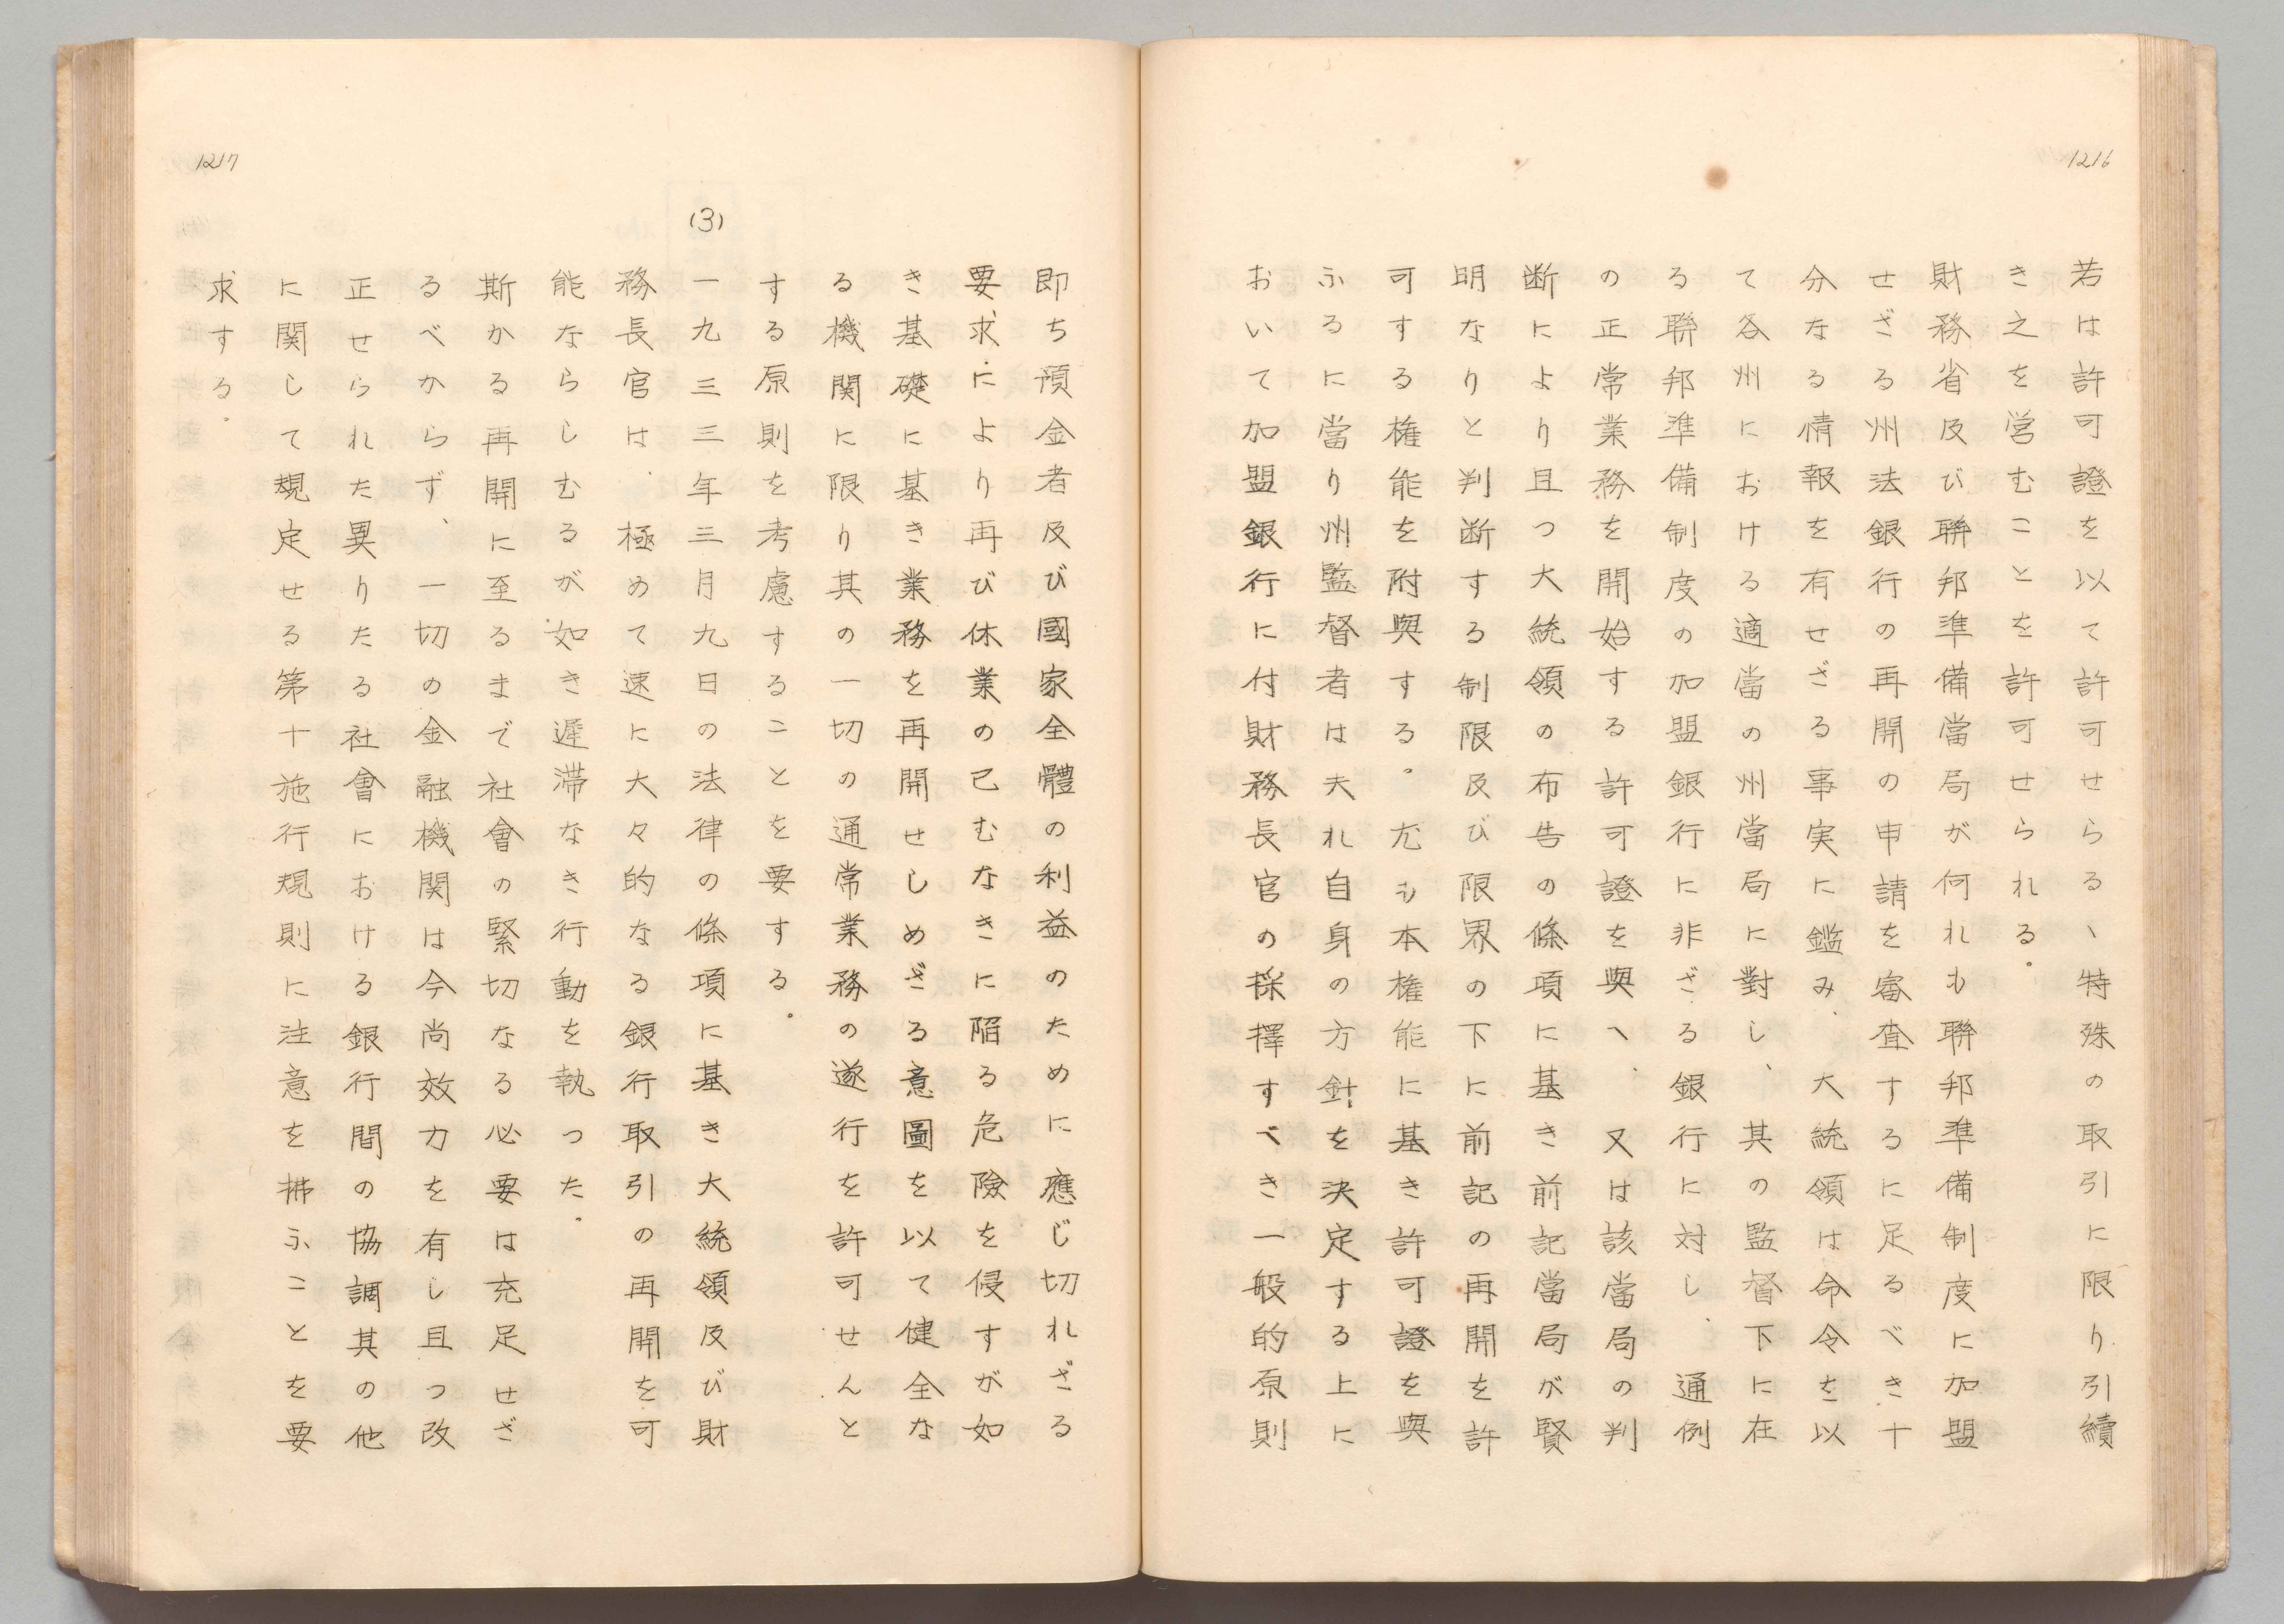 1216
若は許可證を以て許可せらるゝ特殊の取引に限り引續
き之を営むことを許可せられる。
財務省及び聯邦準備當局が何れも聯邦準備制度に加盟
せざる州法銀行の再開の申請を審査するに足るべき十
分なる情報を有せざる事実に鑑み、大統領は命令を以
て各州における適當の州當局に對し、其の監督下に在
る聯邦準備制度の加盟銀行に非ざる銀行に対し、通例
の正常業務を開始する許可證を與へ、又は該當局の判
断により且つ大統領の布告の條項に基き前記當局が賢
明なりと判断する制限及び限界の下に前記の再開を許
可する権能を附與する。尤も本権能に基き許可證を與
ふるに當り州監督者は夫れ自身の方針を決定する上に
おいて加盟銀行に付財務長官の採擇すべき一般的原則
1217
即ち預金者及び國家全體の利益のために應じ切れざる
要求により再び休業の已むなきに陥る危險を侵すが如
き基礎に基き業務を再開せしめざる意圖を以て健全な
る機関に限り其の一切の通常業務の遂行を許可せんと
する原則を考慮することを要する。
(3)
一九三三年三月九日の法律の條項に基き大統領及び財
務長官は、極めて速に大々的なる銀行取引の再開を可
能ならしむるが如き遅滞なき行動を執った。
斯かる再開に至るまで社會の緊切なる必要は充足せざ
るべからず、一切の金融機関は今尚效力を有し且つ改
正せられた異りたる社會における銀行間の協調其の他
に関して規定せる第十施行規則に注意を拂ふことを要
求する。